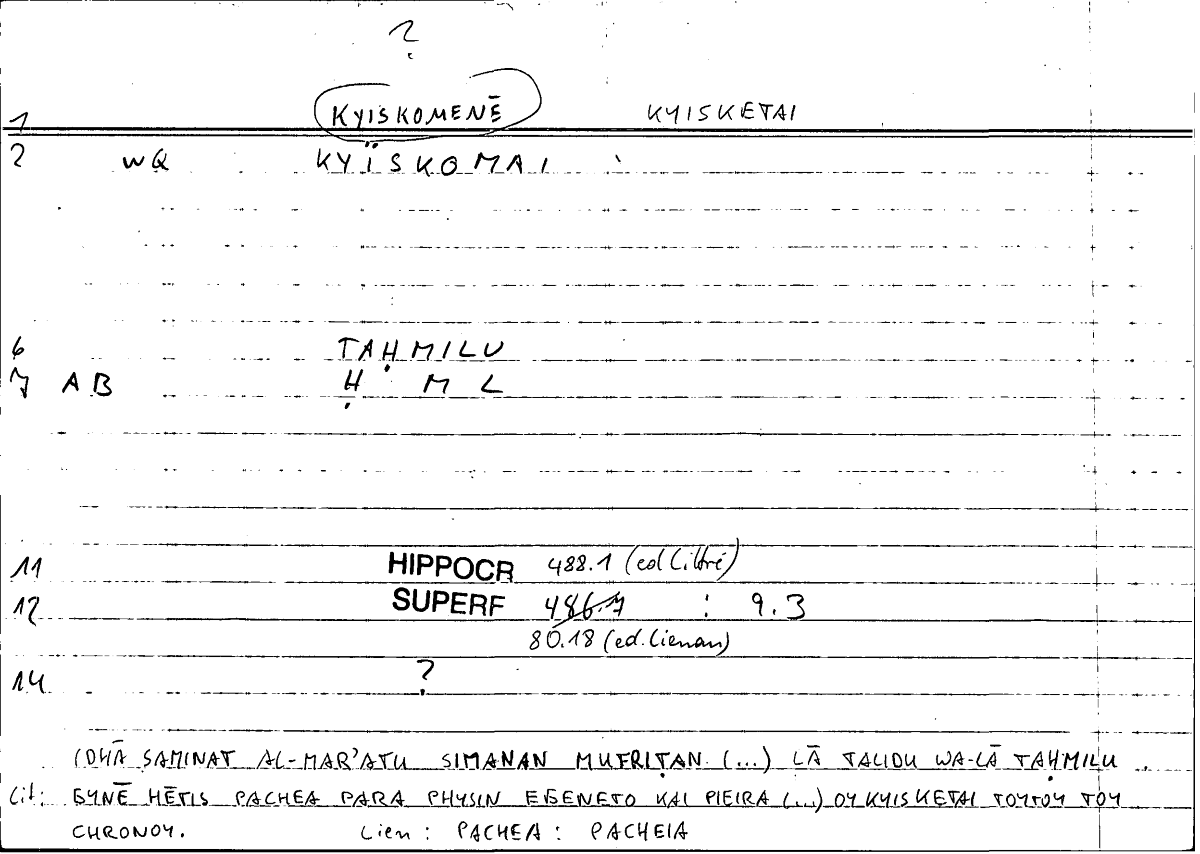 ?
1 KYISKOMENĒ KYISKETAI
2 WQ KYÏSKOMAI :
6 TAḤMILU
7 AB Ḥ M L
11 HIPPOCR 488.1 (ed Littré)
12 SUPERF 486.7 : 9.3
80.18 (ed. Lienau)
14 ?
IDHĀ SAMINAT AL-MAR'ATU SIMANAN MUFRIṬAN (...) LĀ TALIDU WA-LĀ TAḤMILU .
Cit: GYNĒ HĒTIS PACHEA PARA PHYSIN EGENETO KAI PIEIRA (...) OY KYISKETAI TOYTOY TOY
CHRONOY. Lien : PACHEA : PACHEIA